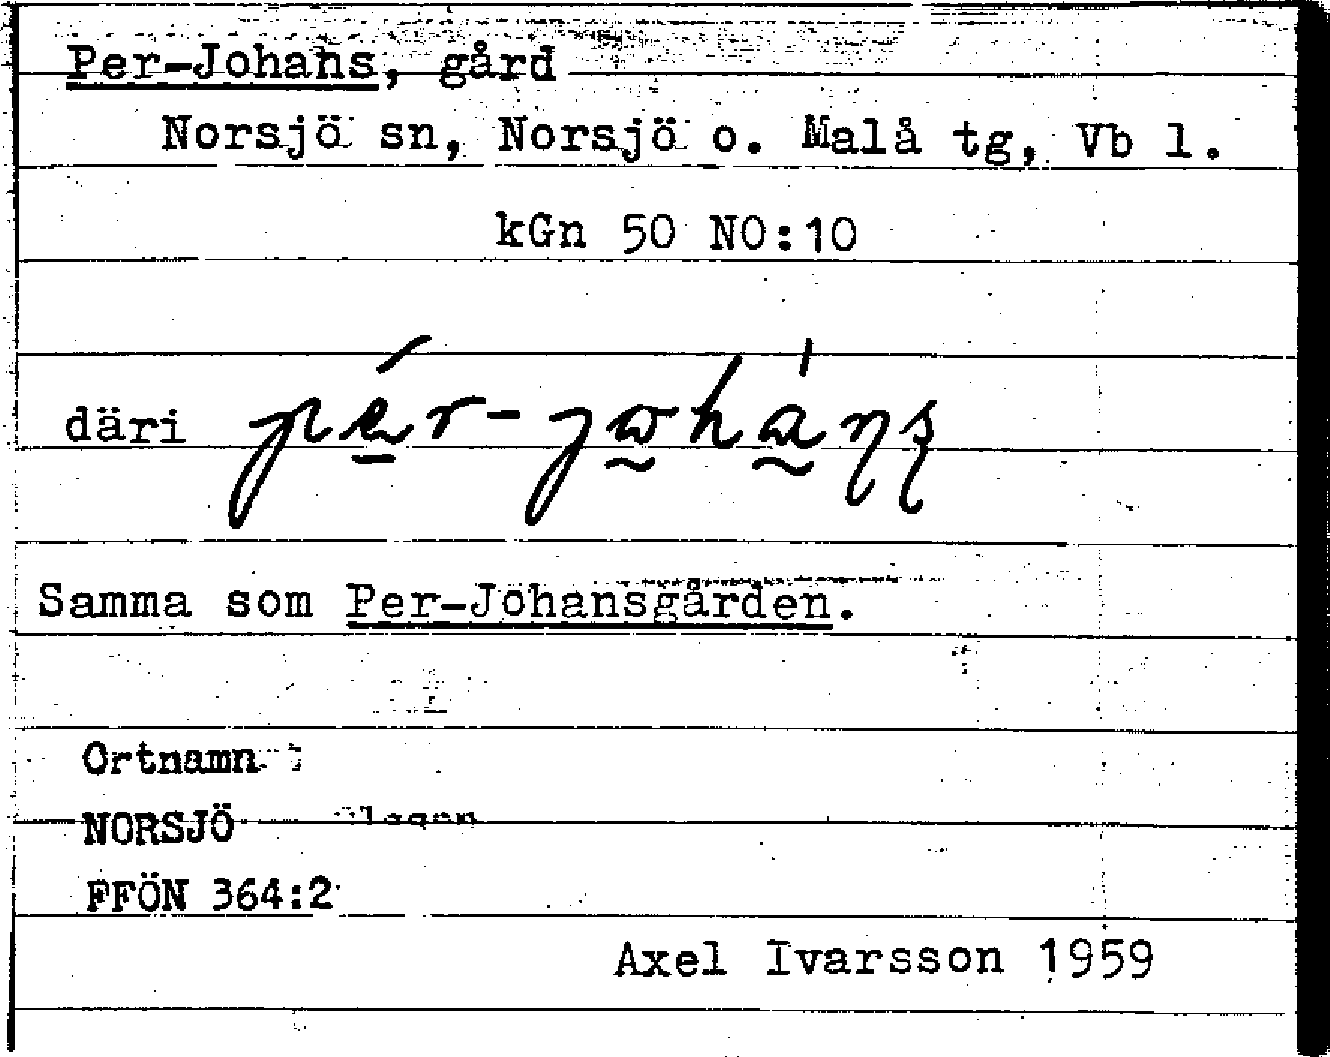 Per-Johans, gård
Norsjö sn, Norsjö o. Malå tg, Vb l.
kGn 50 NO:10
däri pér-ȷωhánș
Samma som Per-Johansgården.
Ortnamn
NORSJÖ
FFÖN 364:2
Axel Ivarsson 1959